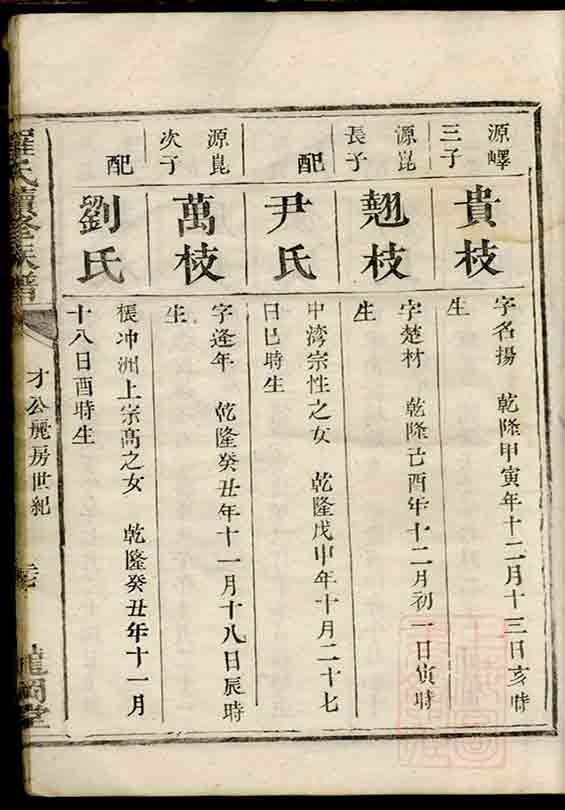 源嶧
三子
貴枝
字名揚　乾隆甲寅年十二月十三日亥時
生
源崑
長子
翹枝
字楚材　乾隆己酉年十二月初一日寅時
生
配
尹氏
中湾宗性之女　乾隆戊申年十月二十七
日巳時生
源崑
次子
萬枝
字逢年　乾隆癸丑年十一月十八日辰時
生
配
劉氏
棖冲洲上宗髙之女　乾隆癸丑年十一月
十八日酉時生
羅氏續修族譜
才公麗房世紀